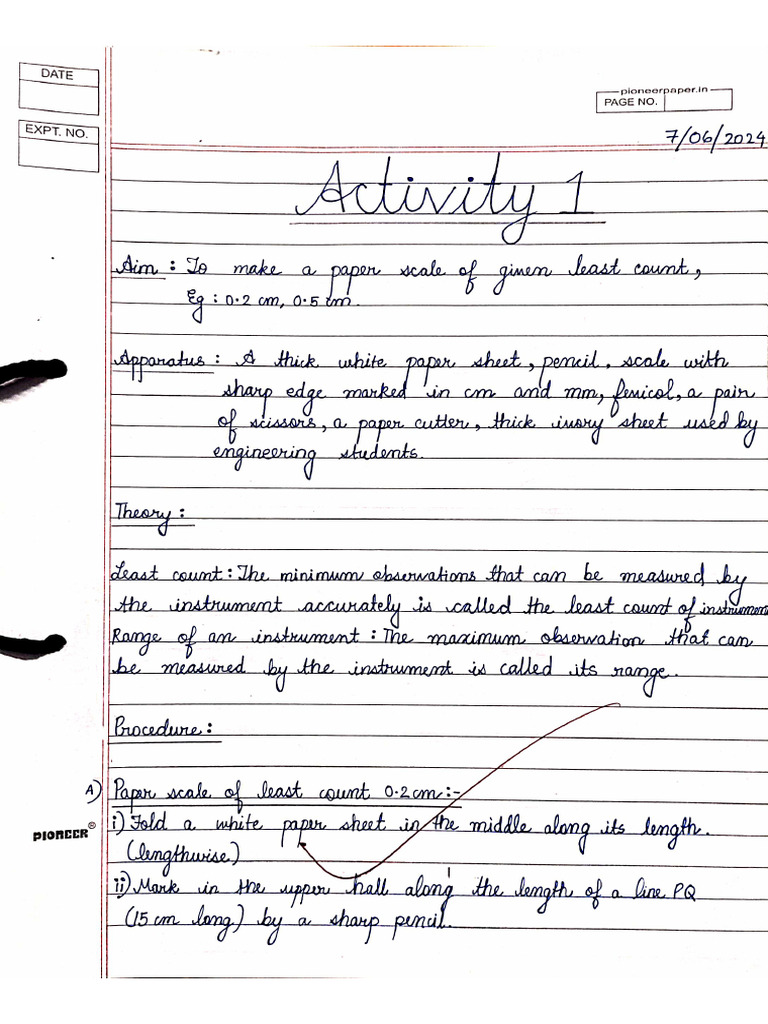 DATE
pioneerpaper.in
PAGE NO.
EXPT. NO.
7/06/2024
Activity 1
Aim : To make a paper scale of given least count,
Eg : 0.2 cm, 0.5 cm.
Apparatus : A thick white paper sheet, pencil, scale with
sharp edge marked in cm and mm, fevicol, a pair
of scissors, a paper cutter, thick ivory sheet used by
engineering students.
Theory :
Least count : The minimum observations that can be measured by
the instrument accurately is called the least count of instrument
Range of an instrument : The maximum observation that can
be measured by the instrument is called its range.
Procedure :
A) Paper scale of least count 0.2 cm :-
i) Fold a white paper sheet in the middle along its length.
PIONEER®
(lengthwise)
ii) Mark in the upper hall along the length of a line PQ
(15 cm long) by a sharp pencil.